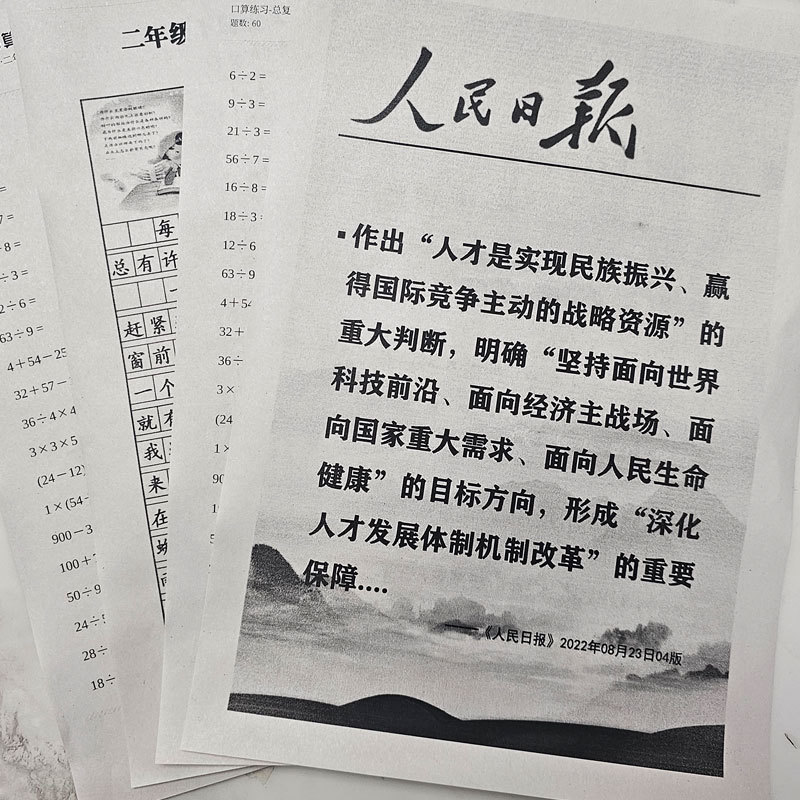 人民日报
▪作出“人才是实现民族振兴、赢
得国际竞争主动的战略资源”的
重大判断，明确“坚持面向世界
科技前沿、面向经济主战场、面
向国家重大需求、面向人民生命
健康”的目标方向，形成“深化
人才发展体制机制改革”的重要
保障....
——《人民日报》2022年08月23日04版
口算练习-总复
题数: 60
6÷2=
9÷3=
21÷3=
56÷7=
16÷8=
18÷3
12÷6
63÷9
4+54
32+
36÷
3×
(24
1×
90
二年级
每
总有许
一
赶紧
窗前
一个
就有
我
来
在
7=
÷8=
÷3=
2÷6=
63÷9=
4+54-25
32+57-
36÷4×4
3×3×5
(24-12)
1×(54-
900-3
100+
50÷9
24÷
28÷
18÷